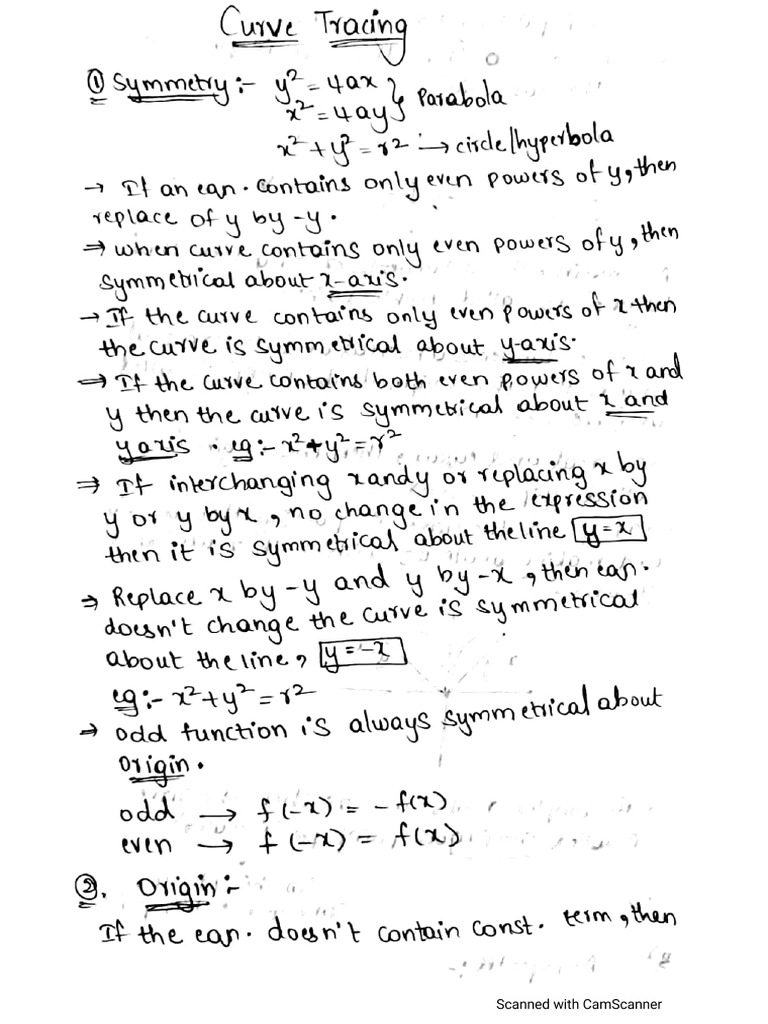 Curve Tracing
① Symmetry :- y² = 4ax } Parabola
x² = 4ay
x² + y² = r² → circle/hyperbola
→ If an eqn. contains only even powers of y, then
replace of y by -y.
⇒ when curve contains only even powers of y, then
symmetrical about x-axis.
→ If the curve contains only even powers of x then
the curve is symmetrical about y-axis.
⇒ If the curve contains both even powers of x and
y then the curve is symmetrical about x and
y axis. eg :- x² + y² = r²
⇒ If interchanging x and y or replacing x by
y or y by x, no change in the expression
then it is symmetrical about the line y = x
⇒ Replace x by -y and y by -x, then eqn.
doesn't change the curve is symmetrical
about the line, y = -x
eg :- x² + y² = r²
→ odd function is always symmetrical about
origin.
odd → f(-x) = -f(x)
even → f(-x) = f(x)
②. Origin :-
If the eqn. doesn't contain const. term, then
Scanned with CamScanner